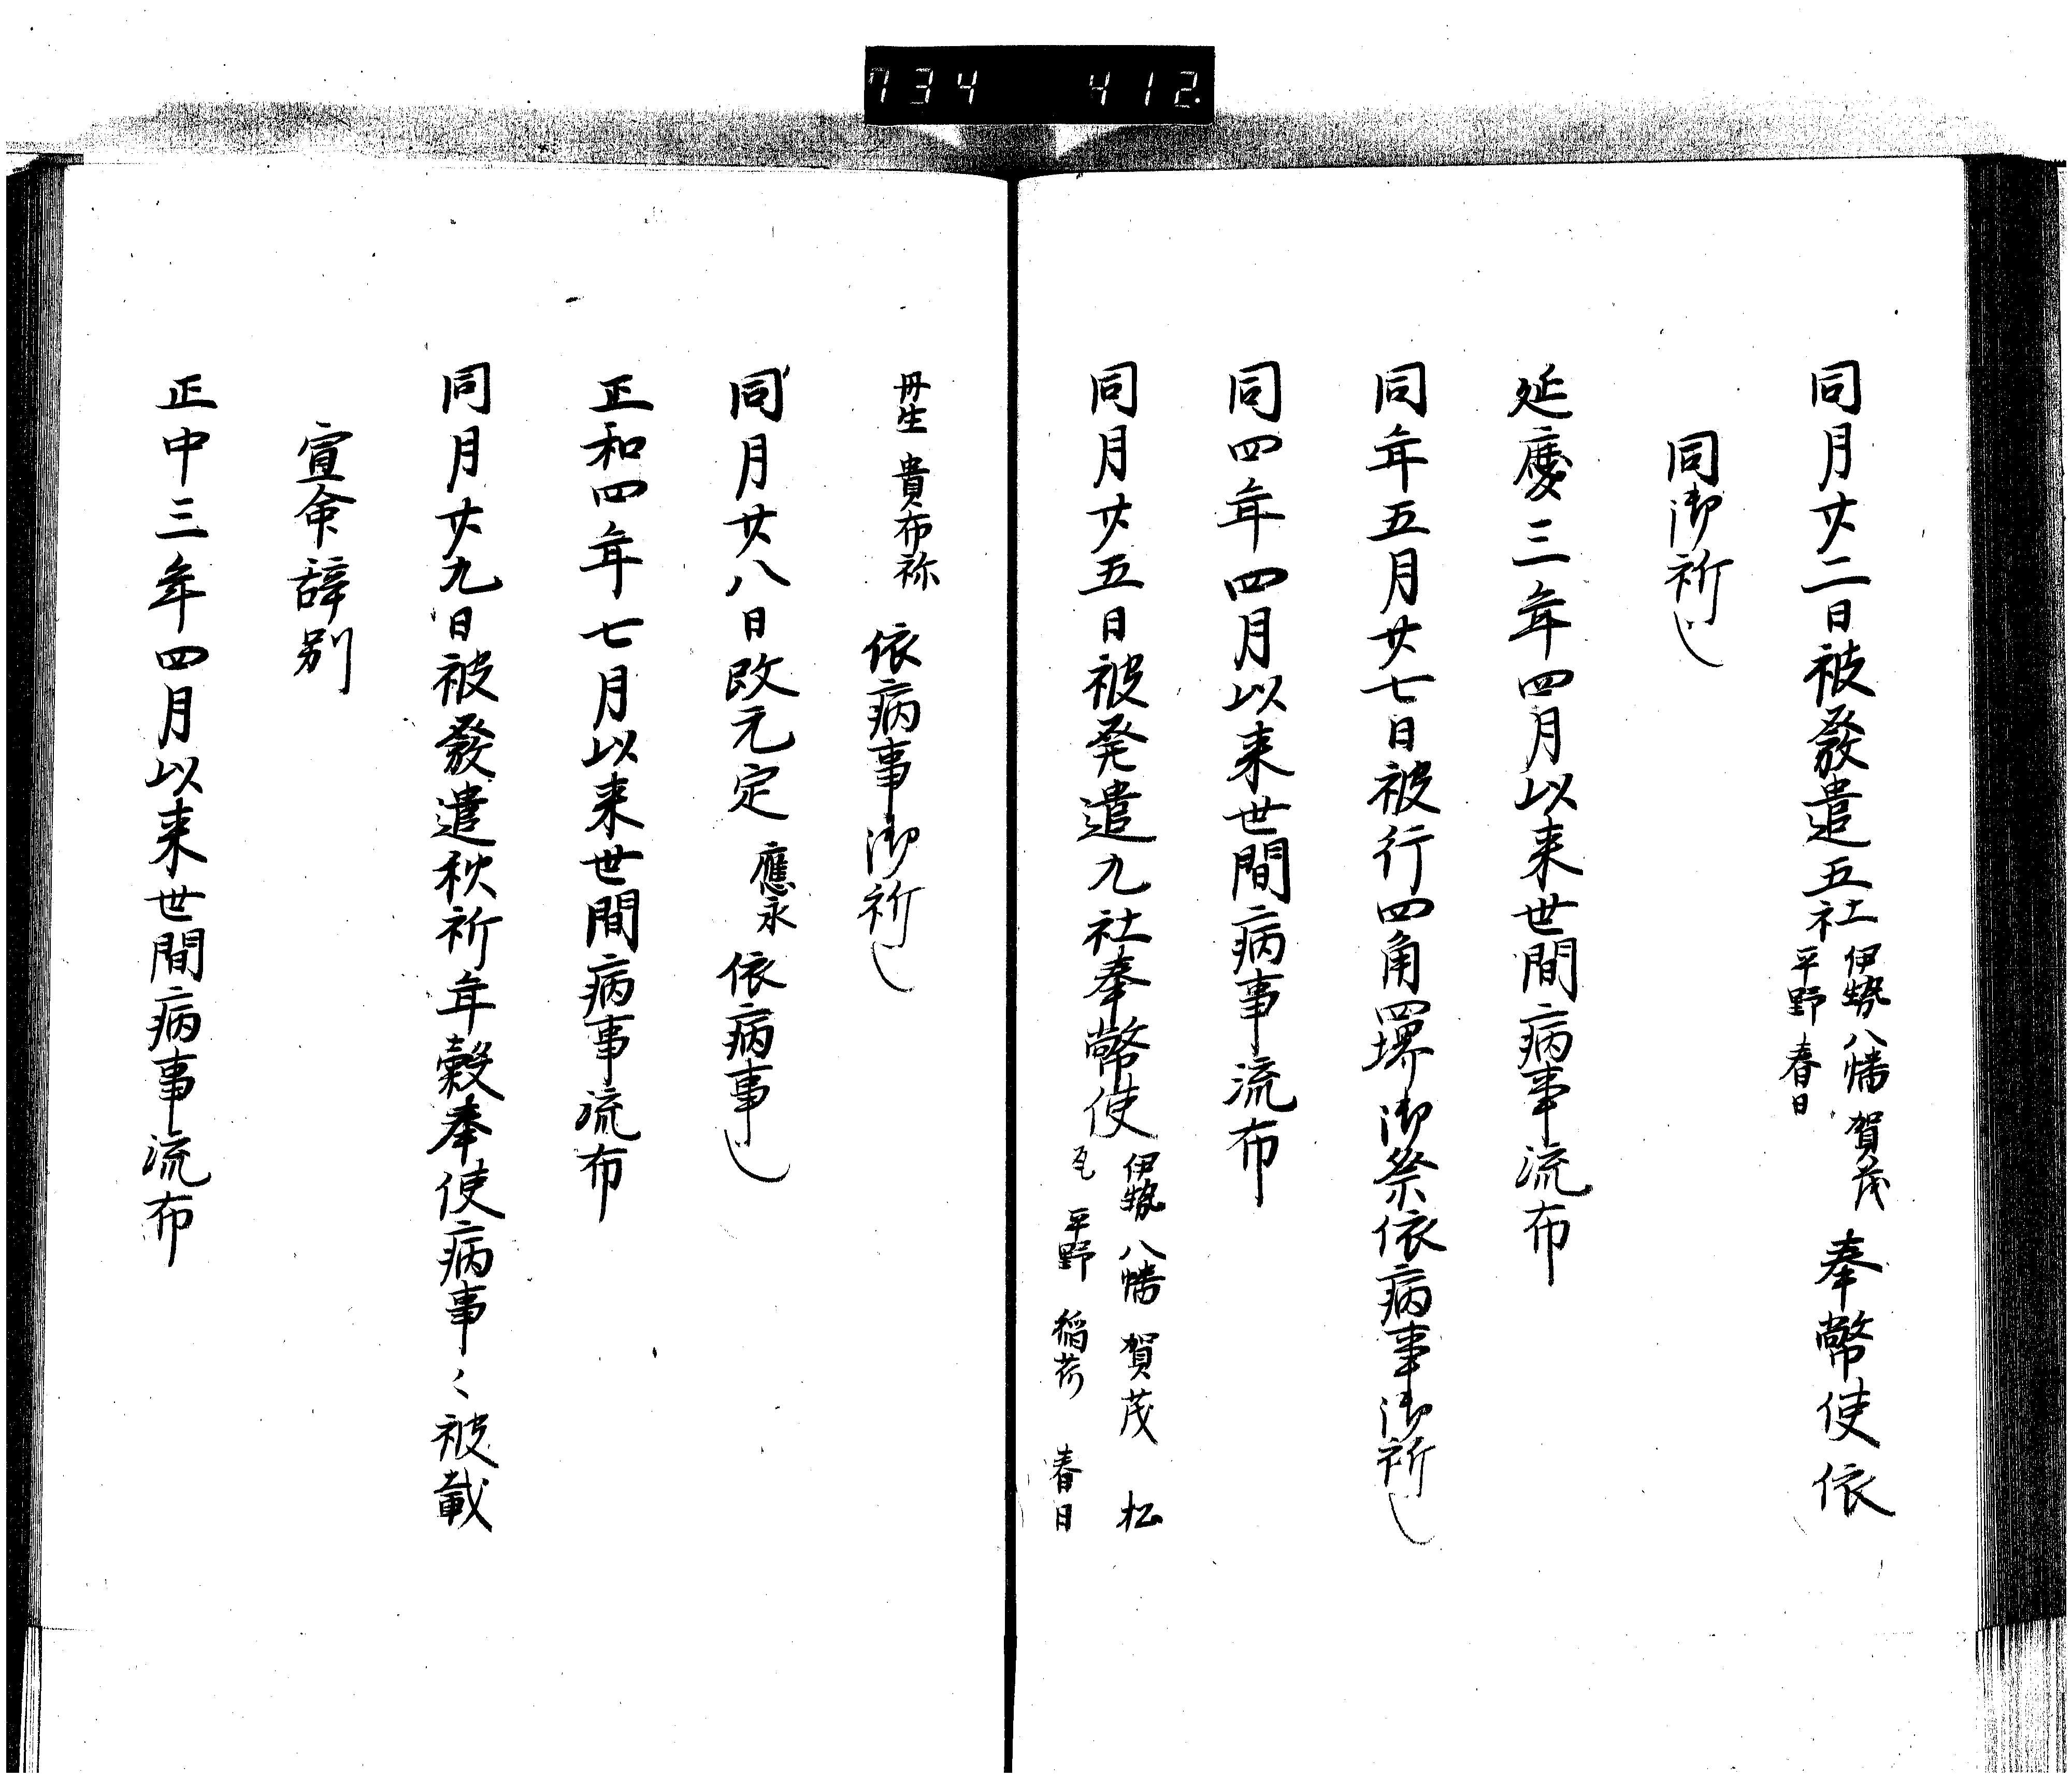 734 412.
同月廿二日被發遣五社伊勢八幡賀茂平野春日奉幣使依
同御祈也
延慶三年四月以来世間病事流布
同年五月廿七日被行四角四堺御祭依病事御祈也
同四年四月以来世間病事流布
同月廿五日被発遣九社奉幣使伊勢八幡賀茂松尾平野稲荷春日
丹生貴布祢依病事御祈也
同月廿八日改元定應永依病事也
正和四年七月以来世間病事流布
同月廿九日被發遣秋祈年穀奉使病事々被載
宣命辞別
正中三年四月以来世間病事流布